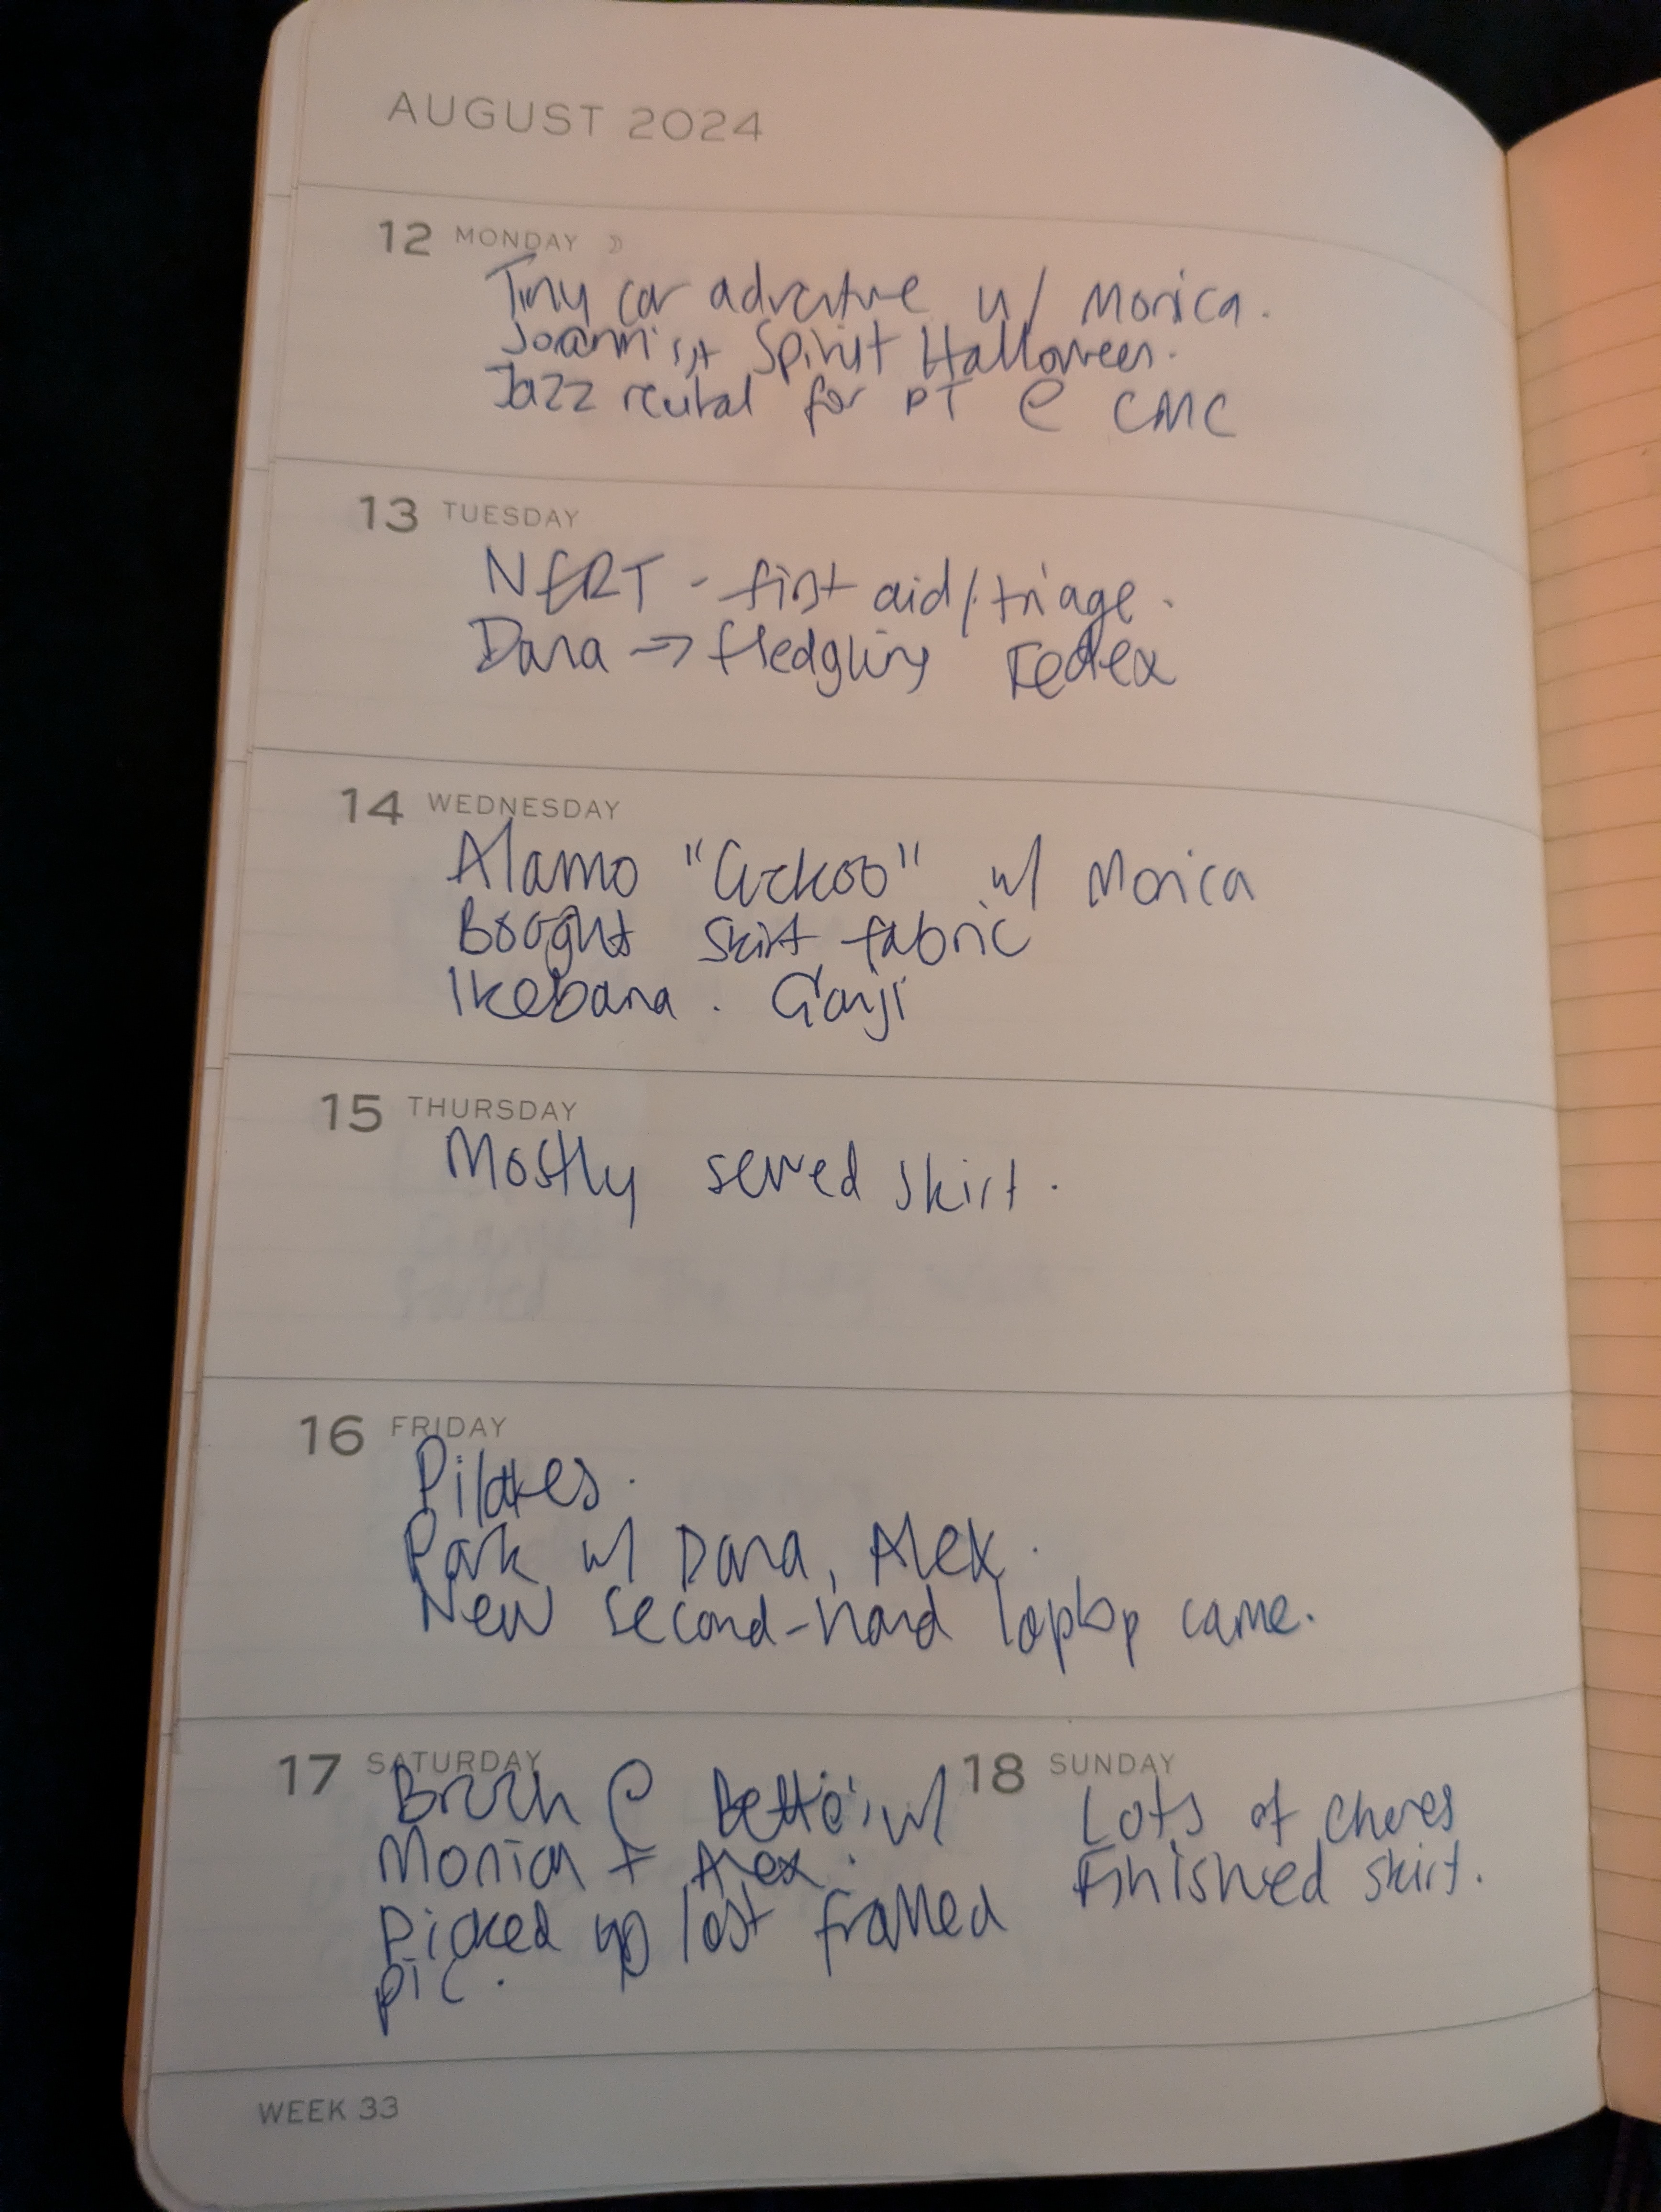 AUGUST 2024
12 MONDAY
Tiny car adventure w/ Monica.
Joann's, + Spirit Halloween.
Jazz recital for PT @ CMC
13 TUESDAY
NERT - first aid/triage.
Dana → fledgling FedEx
14 WEDNESDAY
Alamo "Cuckoo" w/ Monica
Bought skirt fabric
Ikebana.
15 THURSDAY
Mostly sewed skirt.
16 FRIDAY
Pilates.
Park w/ Dana, Alex.
New second-hand laptop came.
17 SATURDAY
Brunch @ w/
Monica + Alex.
Picked up last framed
pic.
18 SUNDAY
Lots of chores
Finished skirt.
WEEK 33